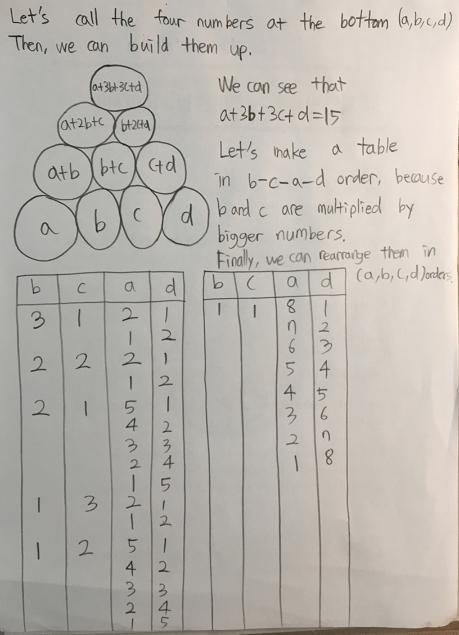 Let's call the four numbers at the bottom (a,b,c,d)
Then, we can build them up.
a+3b+3c+d
a+2b+c b+2c+d
a+b b+c c+d
a b c d
We can see that
a+3b+3c+d=15
Let's make a table
in b-c-a-d order, because
b and c are multiplied by
bigger numbers.
Finally, we can rearrange them in
(a,b,c,d) orders.
b c a d
3 1 2 1
1 2
2 2 2 1
1 2
2 1 5 1
4 2
3 3
2 4
1 5
1 3 2 1
1 2
1 2 5 1
4 2
3 3
2 4
1 5
b c a d
1 1 8 1
7 2
6 3
5 4
4 5
3 6
2 7
1 8